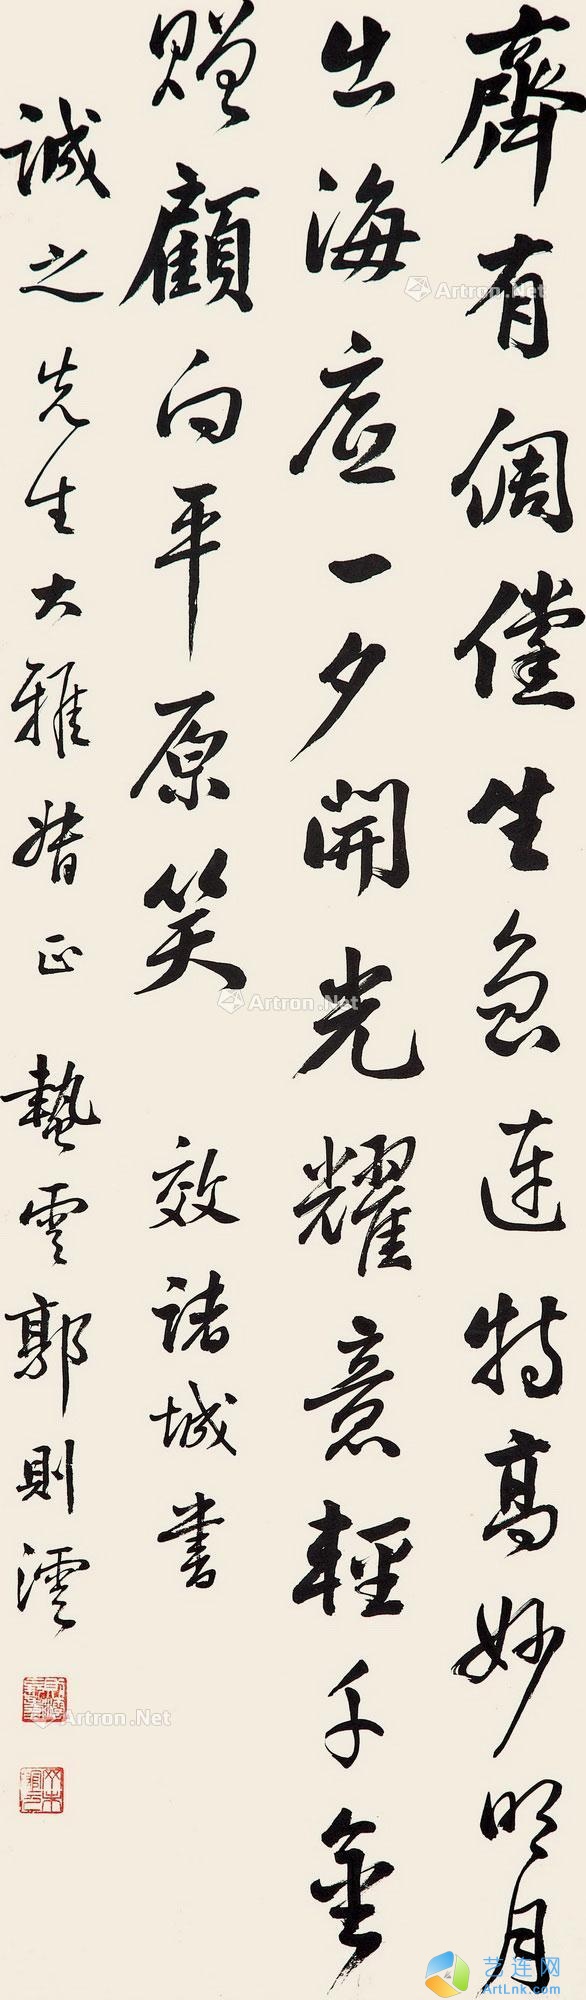 齊有倜儻生魯連特高妙明月
出海底一夕開光耀意輕千金
贈顧向平原笑 效諸城書
誠之先生大雅正 蟄雲郭則澐
Artron.Net
Artron.Net
Artron.Net
艺连网
ArtLnk.com